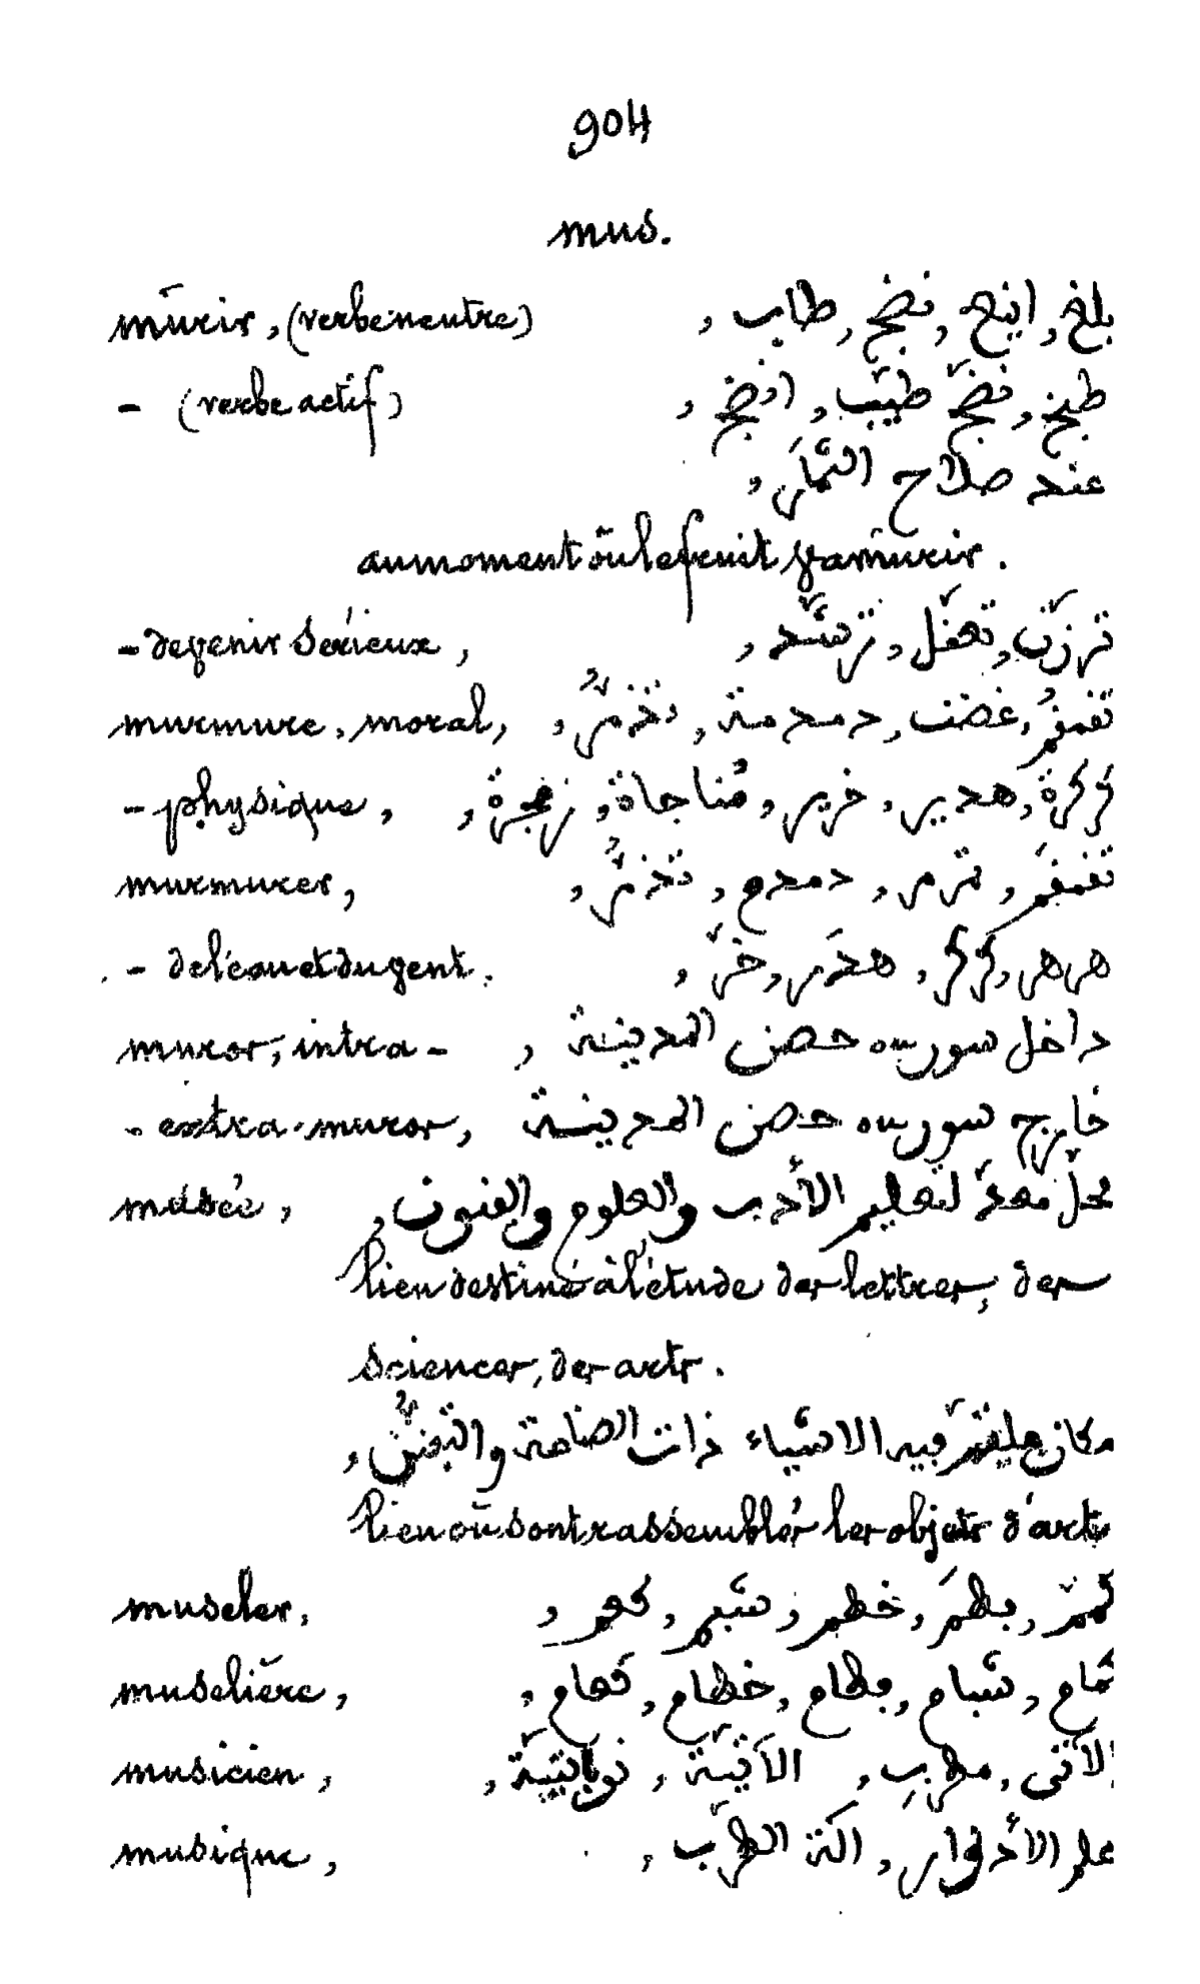 904
mus.
mûrir, (verbe neutre) بلغ, اينع, نضج, طاب,
- (verbe actif) طبخ, نضّج, طيّب, انضج,
عند صلاح الثمار,
au moment où le fruit va mûrir.
- devenir sérieux, ترزّن, تعقّل, ترشّد,
murmure, moral, تغمغُم, غضب, دمدمة, تذمّر,
- physique, كركرة, هدير, خرير, مُناجاة, زمجرة,
murmurer, تغمغم, دمدم, تذمّر,
- de l'eau et du vent. هرهر, كركر, هدَر, خرّ,
muros, intra - داخل سور حصن المدينة,
- extra-muros, خارج سور حصن المدينة
musée, محلّ معدّ لتعليم الأدب والعلوم والفنون,
lieu destiné à l'étude des lettres, des
sciences, des arts.
مكان فيه الاشياء ذات الصناعة والتفنّن,
lieu où sont rassemblés les objets d'arts
museler, كمّم, خطم, شبم, كعم,
muselière, كمام, شبام, خطام, كعام,
musicien, مطرب,
musique, علم الأدوار, الطرب,